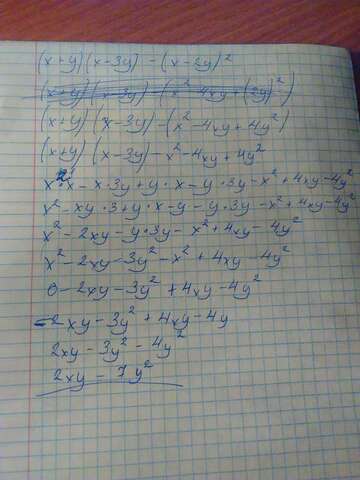 (x+y)(x-3y)-(x-2y)²
(x+y)(x-3y)-(x²-4xy+(2y)²)
(x+y)(x-3y)-(x²-4xy+4y²)
(x+y)(x-3y)-x²-4xy+4y²
x·x-x·3y+y·x-y·3y-x²+4xy-4y²
x²-xy·3+y·x-y-y·3y-x²+4xy-4y²
x²-2xy-y·3y-x²+4xy-4y²
x²-2xy-3y²-x²+4xy-4y²
0-2xy-3y²+4xy-4y²
-2xy-3y²+4xy-4y
2xy-3y²-4y²
2xy-7y²